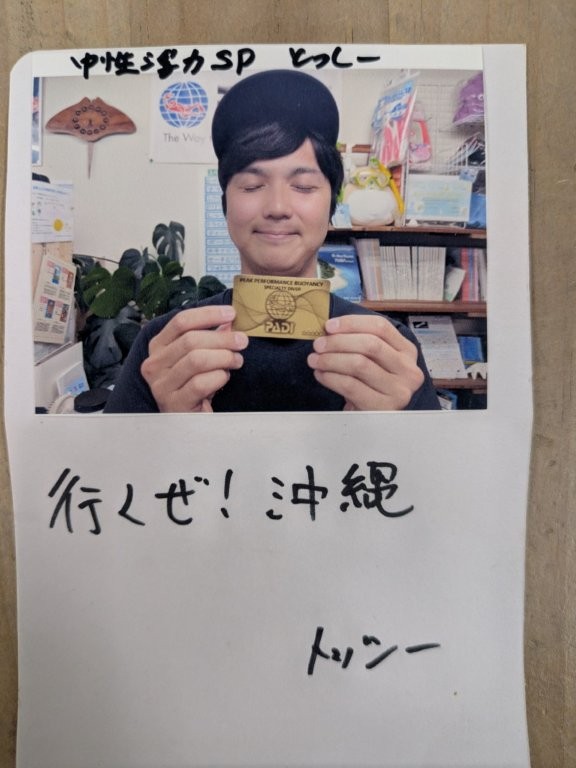 中性浮力SP とっしー
The Way
PEAK PERFORMANCE BUOYANCY
SPECIALTY DIVER
PADI
行くぜ！沖縄
トッシー